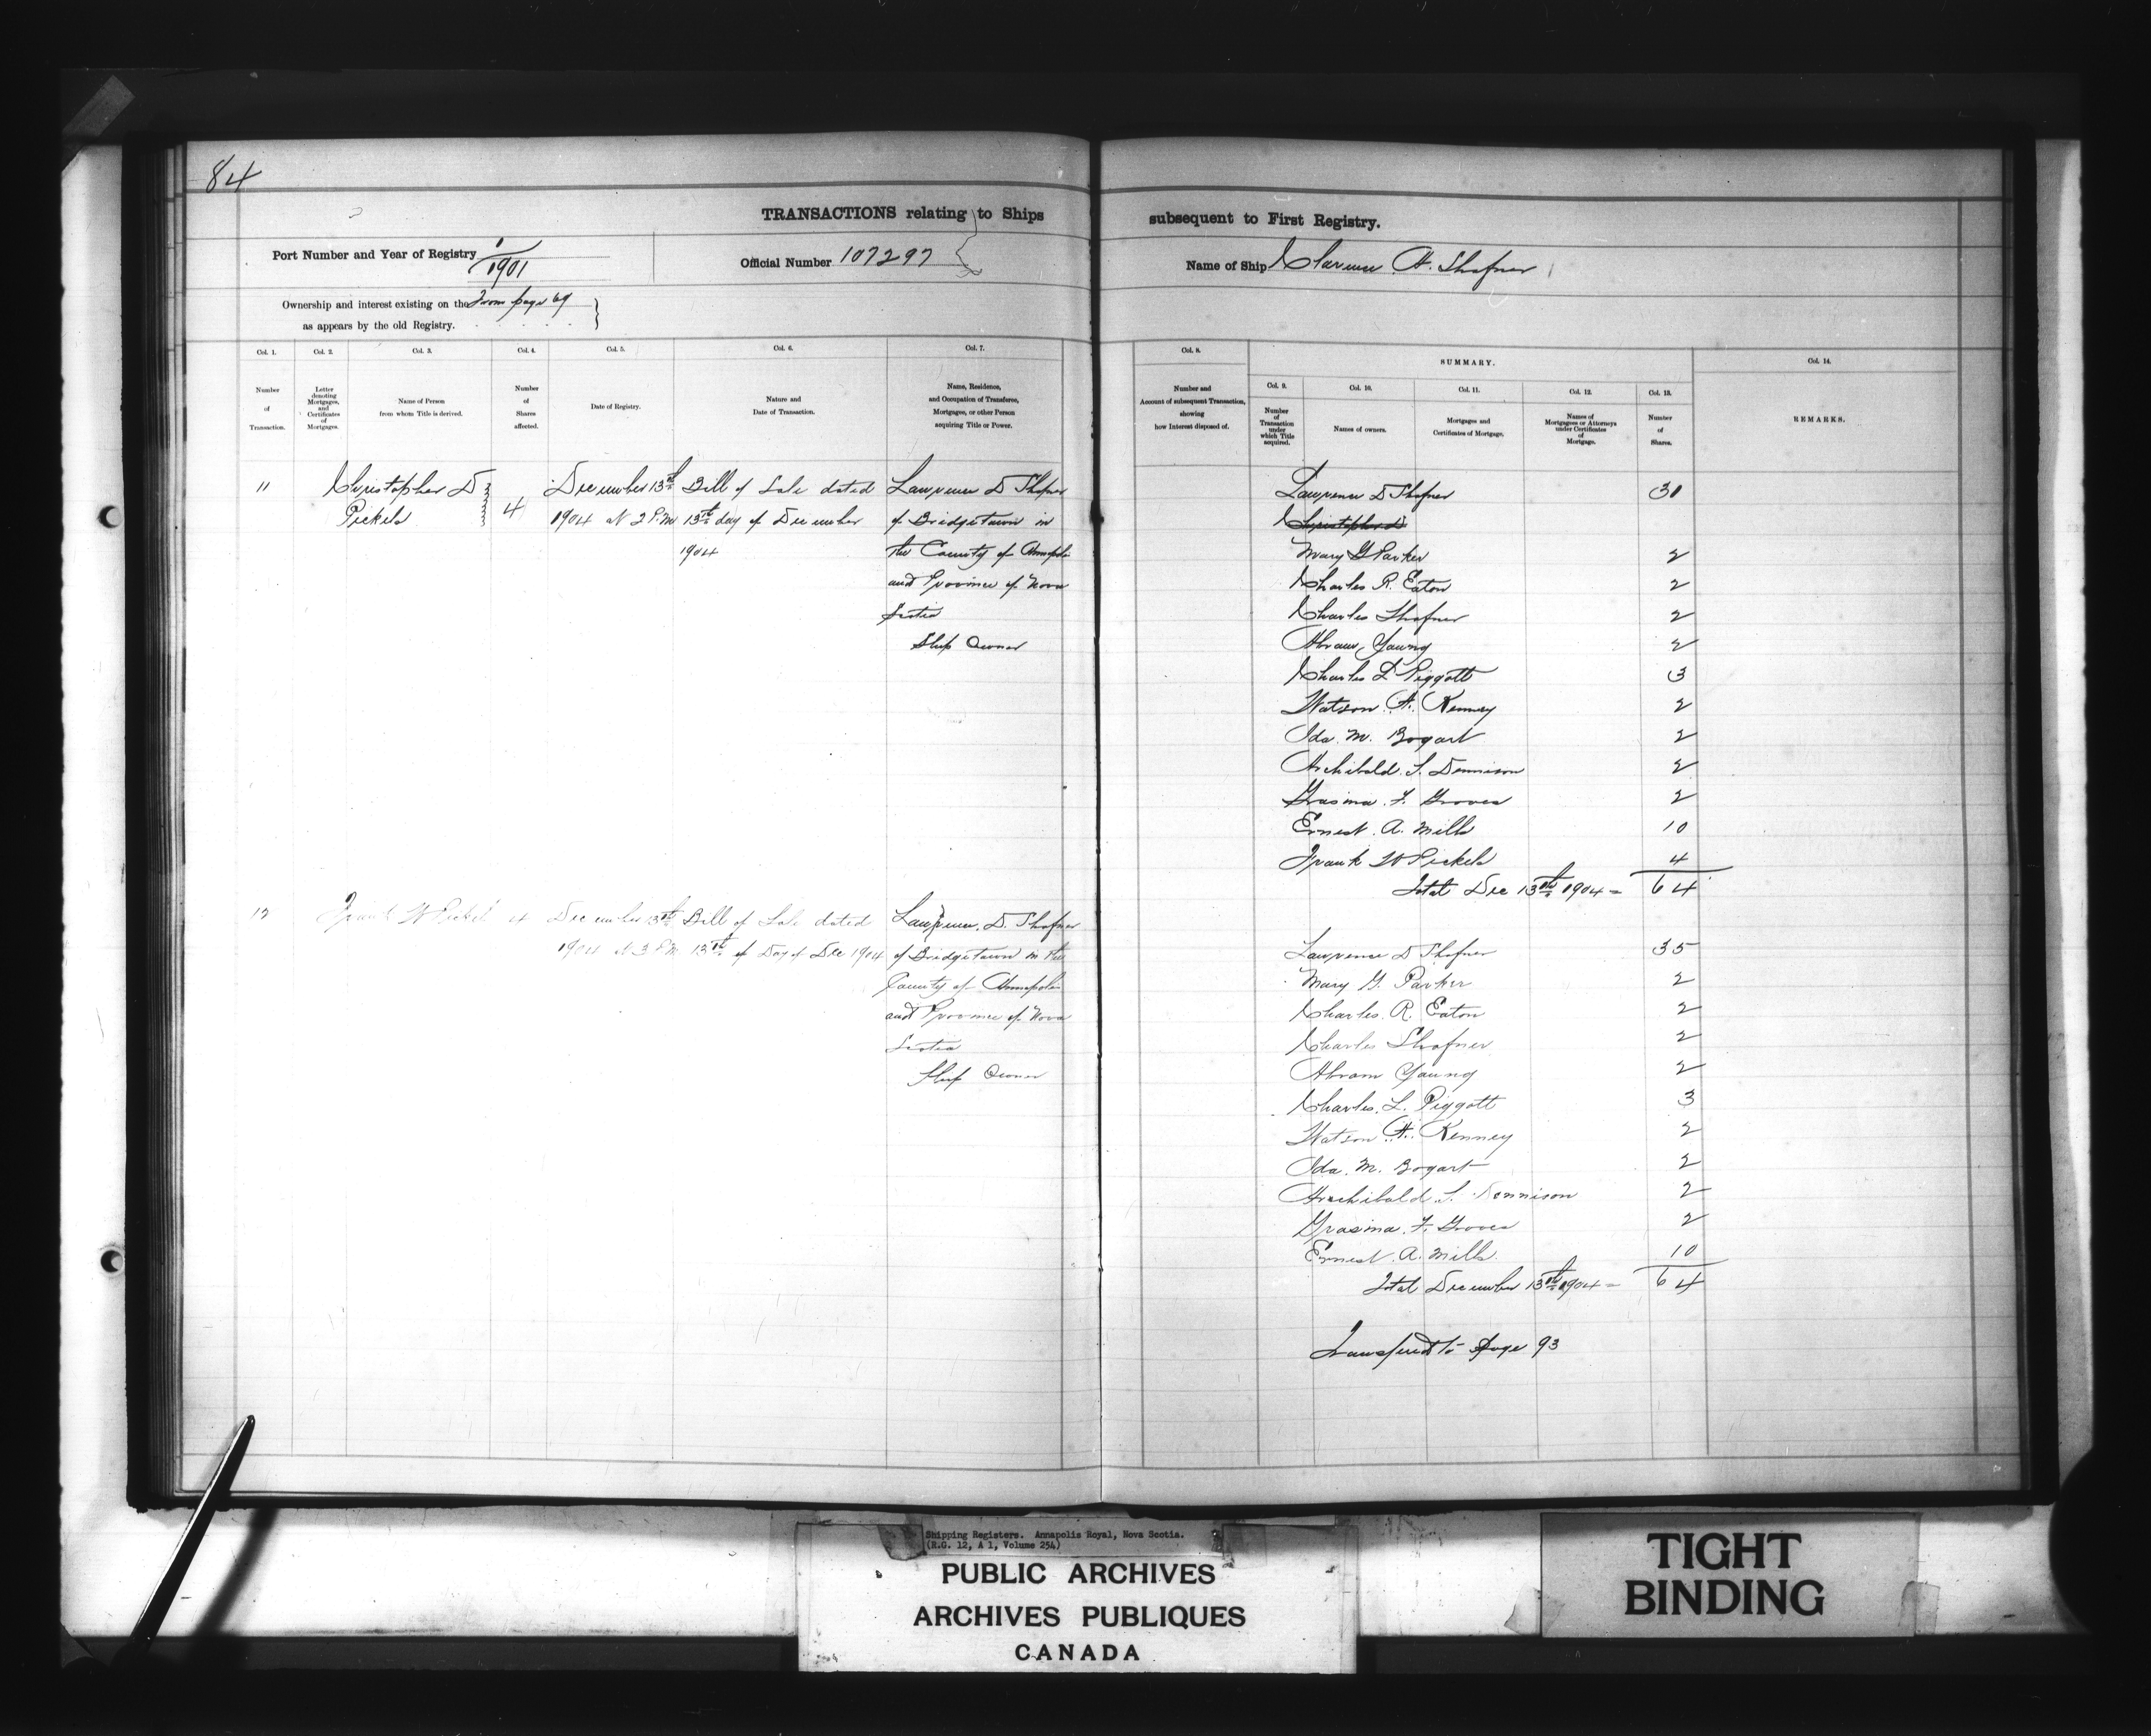 84
TRANSACTIONS relating to Ships subsequent to First Registry.
Port Number and Year of Registry 1/1901
Official Number 107297
Name of Ship Clarence A. Shafner
Ownership and interest existing on the From page 69
as appears by the old Registry.
Col. 1. Col. 2. Col. 3. Col. 4. Col. 5. Col. 6. Col. 7. Col. 8. SUMMARY. Col. 14.
Col. 9. Col. 10. Col. 11. Col. 12. Col. 13.
Number of Transaction.
Letter denoting Mortgages, and Certificates of Mortgages.
Name of Person from whom Title is derived.
Number of Shares affected.
Date of Registry.
Nature and Date of Transaction.
Name, Residence, and Occupation of Transferee, Mortgagee, or other Person acquiring Title or Power.
Number and Account of subsequent Transaction, showing how Interest disposed of.
Number of Transaction under which Title acquired.
Names of owners.
Mortgages and Certificates of Mortgage.
Names of Mortgagees or Attorneys under Certificates of Mortgage.
Number of Shares.
REMARKS.
11
Christopher D
Pickels
4
December 13th
1904 at 2 P.M
Bill of Sale dated
13th day of December
1904
Lawrence D Shafner
of Bridgetown in
the County of Annapolis
and Province of Nova
Scotia
Ship Owner
Lawrence D Shafner 31
Christopher D
Mary G Parker 2
Charles R. Eaton 2
Charles Shafner 2
Abram Young 2
Charles L Piggott 3
Watson A. Kenney 2
Ida. M. Bogart 2
Archibald. S. Dennison 2
Grasina. F. Groves 2
Ernest. A. Mills 10
Frank W Pickels 4
Total Dec 13th 1904 = 64
12
Frank W Pickels
4
December 13th
1904 at 3 P.M
Bill of Sale dated
13th of Day of Dec 1904
Lawrence. D. Shafner
of Bridgetown in the
County of Annapolis
and Province of Nova
Scotia
Ship Owner
Lawrence D Shafner 35
Mary G. Parker 2
Charles. R. Eaton 2
Charles Shafner 2
Abram Young 2
Charles. L. Piggott 3
Watson A. Kenney 2
Ida. M. Bogart 2
Archibald S. Dennison 2
Grasina. F. Groves 2
Ernest. A. Mills. 10
Total December 13th 1904 = 64
Transferred to page 93
Shipping Registers. Annapolis Royal, Nova Scotia.
(R.G. 12, A 1, Volume 254)
PUBLIC ARCHIVES
ARCHIVES PUBLIQUES
CANADA
TIGHT
BINDING